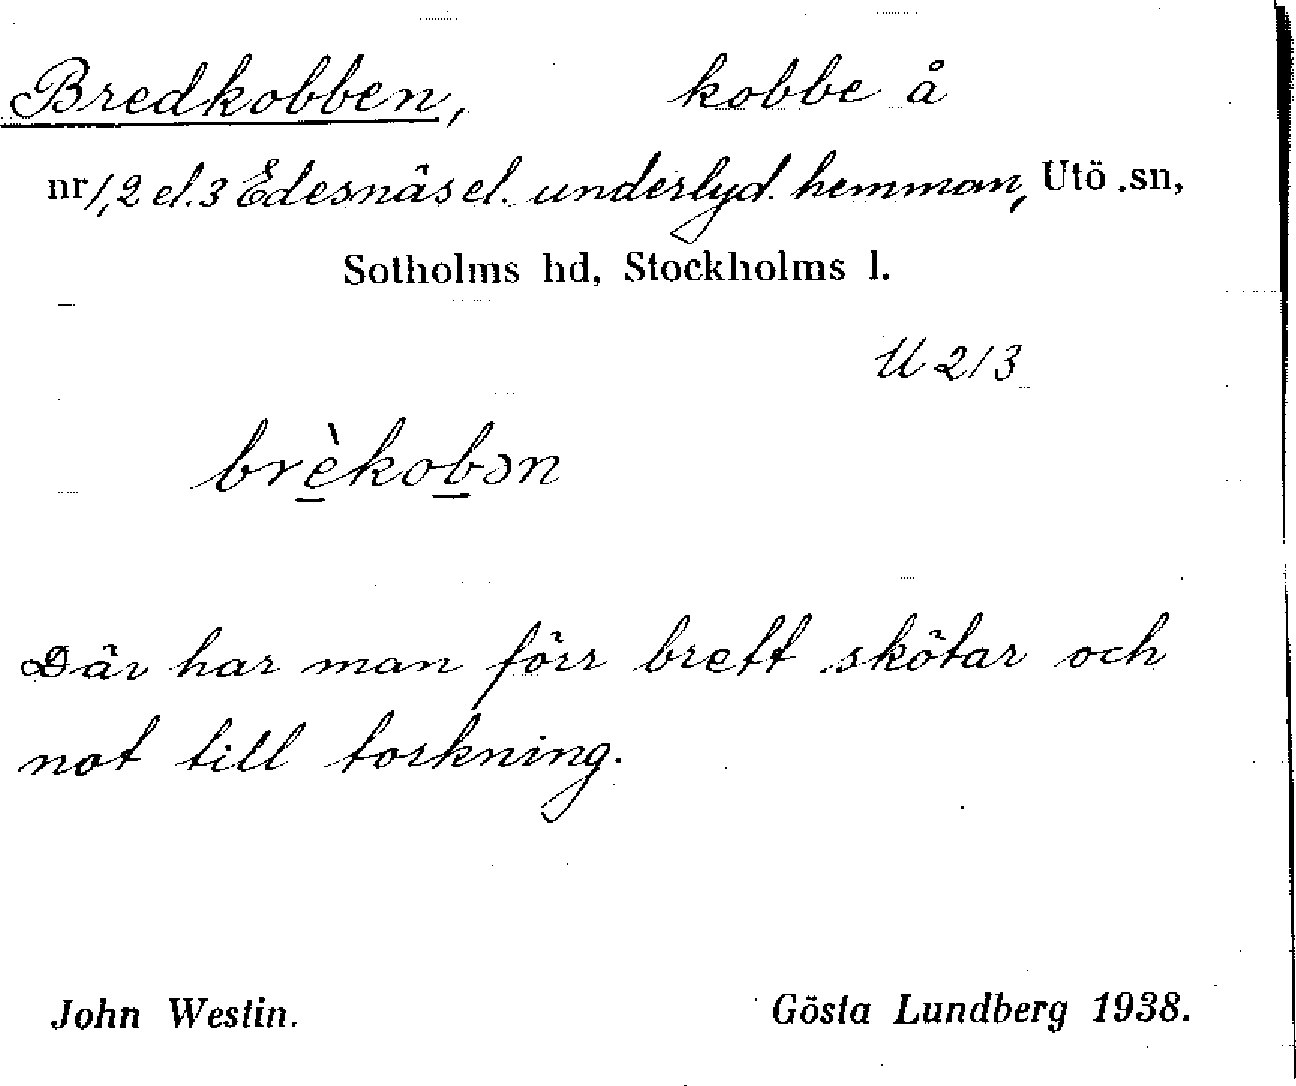 Bredkobben, kobbe å
nr 1,2 el. 3 Edesnäs el. underlyd. hemman, Utö sn,
Sotholms hd, Stockholms l.
U 213
brèkobən
Där har man förr brett skötar och
not till torkning.
John Westin. Gösta Lundberg 1938.